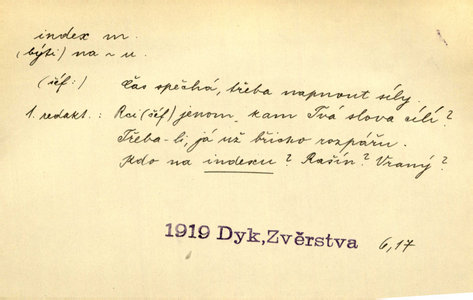 index m.
(býti) na ~ u.
(šéf:) Čas spěchá, třeba napnout síly.
1. redakt.: Rci (šéf) jenom, kam Tvá slova cílí?
Třeba-li, já už břicho rozpářu.
Kdo na indexu? Rašín? Vraný?
1919 Dyk,Zvěrstva 6,17